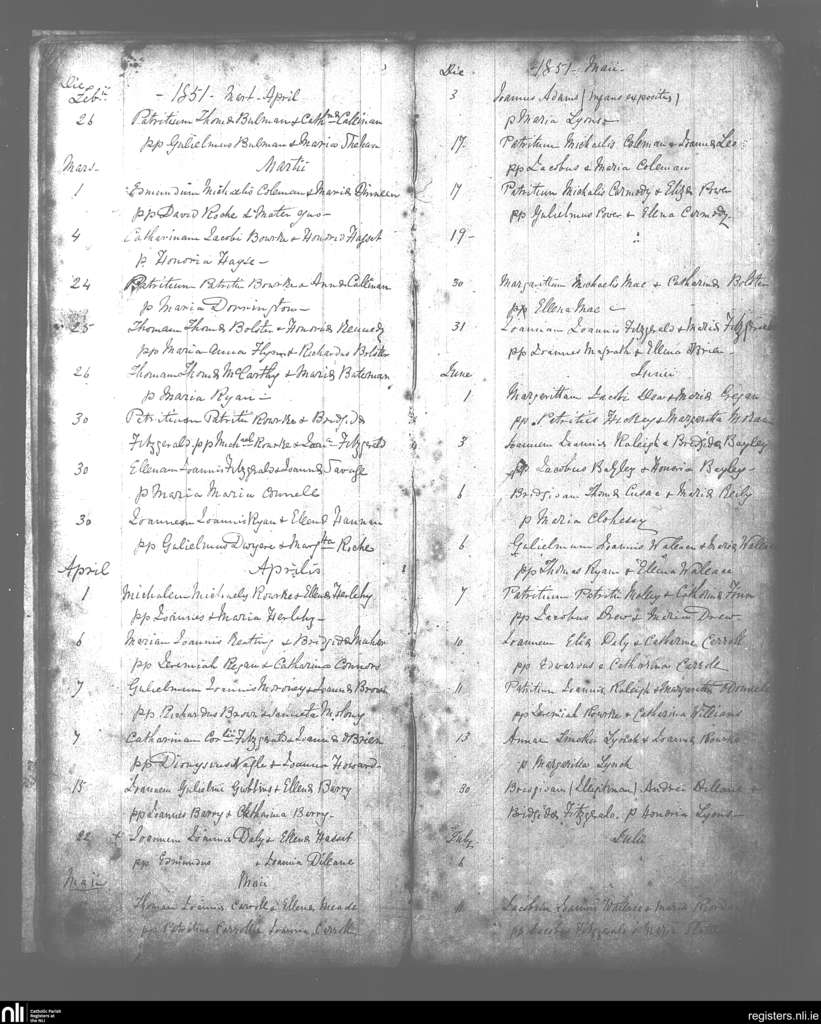 Die
Feb
- 1851 - Mart - April
26 Patritium Thom & Bulman & Cath Callinan
pp Gulielmus Bulman & Maria
Mars - Martii
1 Edmundum Michaelis Coleman & Maria Dinneen
pp David Roche & Mater ejus -
4 Catharinam Jacobi Bourke & Honoria Hasset
p Honoria Hayse -
24 Patritium Patritii Bourke & Anna Callinan
p Maria Dorrington -
25 Thomam Thoma Bolster & Honoria Kennedy
pp Maria Anna Flynn & Richardus Bolster
26 Thomam Thoma McCarthy & Maria Bateman
p Maria Ryan -
30 Patritium Patritii Rourke & Bridgida
Fitzgerald. pp Mich Rourke & Fitzgerald
30 Elenam Joannis Fitzgerald & Joanna Savage
p Maria Maria Connell
30 Joannem Joannis Ryan & Ellena Hannan
pp Gulielmus Dwyere & Marg Roche
April Aprilis
1 Michalem Michaely Rourke & Ellena Herlihy
pp Joannes & Maria Herlihy -
6 Mariam Joannis Keating & Bridgida Maher
pp Jeremiah Regan & Catharina Connors
7 Gulielmum Joannis Moroney & Joanna Brown
pp Richardus Brown & Joanneta Molony
7 Catharinam Cor Fitzgerald & Joanna OBrien
pp Dionysius Nagle & Joanna Howard -
15 Joannem Gulielmi Gubbins & Ellena Barry
pp Joannes Barry & Catharina Barry -
22 + Joannem Joannis Daly & Ellena Hasset
pp Edmundus & Joanna Dileane
Maii Maii
Thomam Joannis Carroll & Ellena Meade
pp Patritius Carroll & Joanna Carroll
Die - 1851 - Maii -
3 Joannes Adams (infans expositus)
p Maria Lyons
17. Patritium Michaelis Coleman & Joanna Lee
pp Jacobus & Maria Coleman
17 Patritium Michalis Cormody & Eliza Power
pp Gulielmus Power & Elena Cormody
19 -
30 Margarittam Michaelis Mac & Catharina Bolster
pp Ellena Mac
31 Joannam Joannis Fitzgerald & Maria Fitzgerald
pp Joannes Magrath & Ellena OBrien -
June Junii
1 Margarittam Jacobi & Maria Gegan
pp Patritius Hickey & Margaretta
3 Joannem Joannis Raleigh & Bridgida Bagley
pp Jacobus Bagley & Honoria Bagley -
6 Bridgidam Thoma Cusac & Maria Reily
p Maria Clohessy
6 Gulielmum Joannis Wallace & Maria Wallace
pp Thomas Ryan & Ellena Wallace
7 Patritium Patritii Moloy & Catharina Finn
pp Jacobus Drew & Maria Drew
10 Joannem Elia Daly & Catharina Carroll
pp Edwardus & Catharina Carroll
11 Patritium Joannis Raleigh & Margaretta ODonnell
pp Jeremiah Rourke & Catharina Williams
13 Annae Lynch & Joanna Rourke
p Margaritta Lynch
30 Bridgidam (Illegitimam) Andrei Dileane &
Bridgida Fitzgerald. p Honoria Lyons -
July. Julii
6
11 Jacobum Joannis Wallace & Maria
pp Jacobus Fitzgerald & Maria
nli
Catholic Parish
Registers at
the NLI
registers.nli.ie